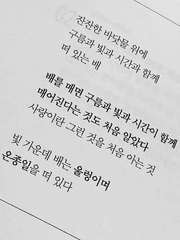 잔잔한 바닷물 위에
구름과 빛과 시간과 함께
떠 있는 배
배를 매면 구름과 빛과 시간이 함께
매어진다는 것도 처음 알았다
사랑이란 그런 것을 처음 아는 것
빛 가운데 배는 울렁이며
온종일을 떠 있다